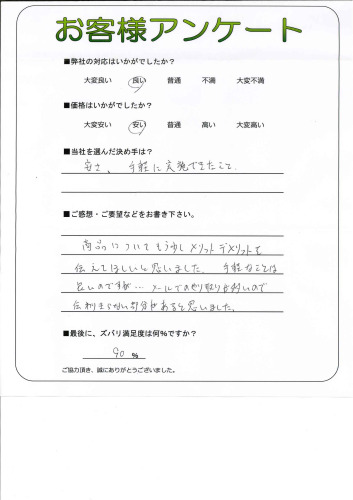 お客様アンケート
■弊社の対応はいかがでしたか？
大変良い 良い 普通 不満 大変不満
■価格はいかがでしたか？
大変安い 安い 普通 高い 大変高い
■当社を選んだ決め手は？
安さ、手軽に実施できたこと
■ご感想・ご要望などをお書き下さい。
商品についてもう少しメリットデメリットを
伝えてほしいと思いました。手軽なことは
良いのですが…メールでのやり取りが多いので
伝わりきらない部分があると思いました。
■最後に、ズバリ満足度は何%ですか？
90 %
ご協力頂き、誠にありがとうございました。